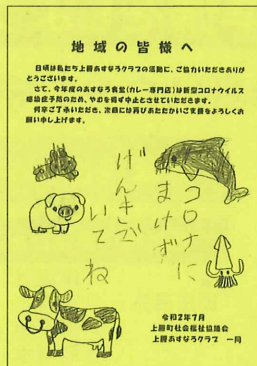 地域の皆様へ
日頃は私たち上勝あすなろクラブの活動に、ご協力いただきありが
とうございます。
さて、今年度のあすなろ食堂(カレー専門店)は新型コロナウイルス
感染症予防のため、やむを得ず中止とさせていただきます。
何卒ご了承いただき、次回には再びあたたかいご支援をよろしくお
願い申し上げます。
コロナに
まけず
げんきで
いてね
令和2年7月
上勝町社会福祉協議会
上勝あすなろクラブ 一同